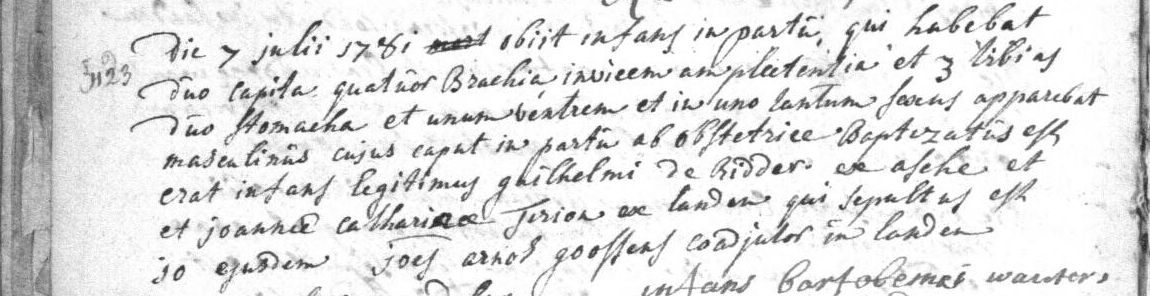 Die 7 julii 1781 obiit infans in partu, qui habebat
duo capita quatuor Brachia, invicem amplectentia et 3 tibias
duo stomacha et unum ventrem et in uno tantum sexus apparebat
masculinus cujus caput in partu ab obstetrice Baptizatus est
erat infans legitimus guilhelmi de Ridder ex asche et
et joannæ catharinæ Terion ex landen qui sepultus est
10 ejusdem joes arnol goossens coadjutor in landen
infans bartolemei wauters